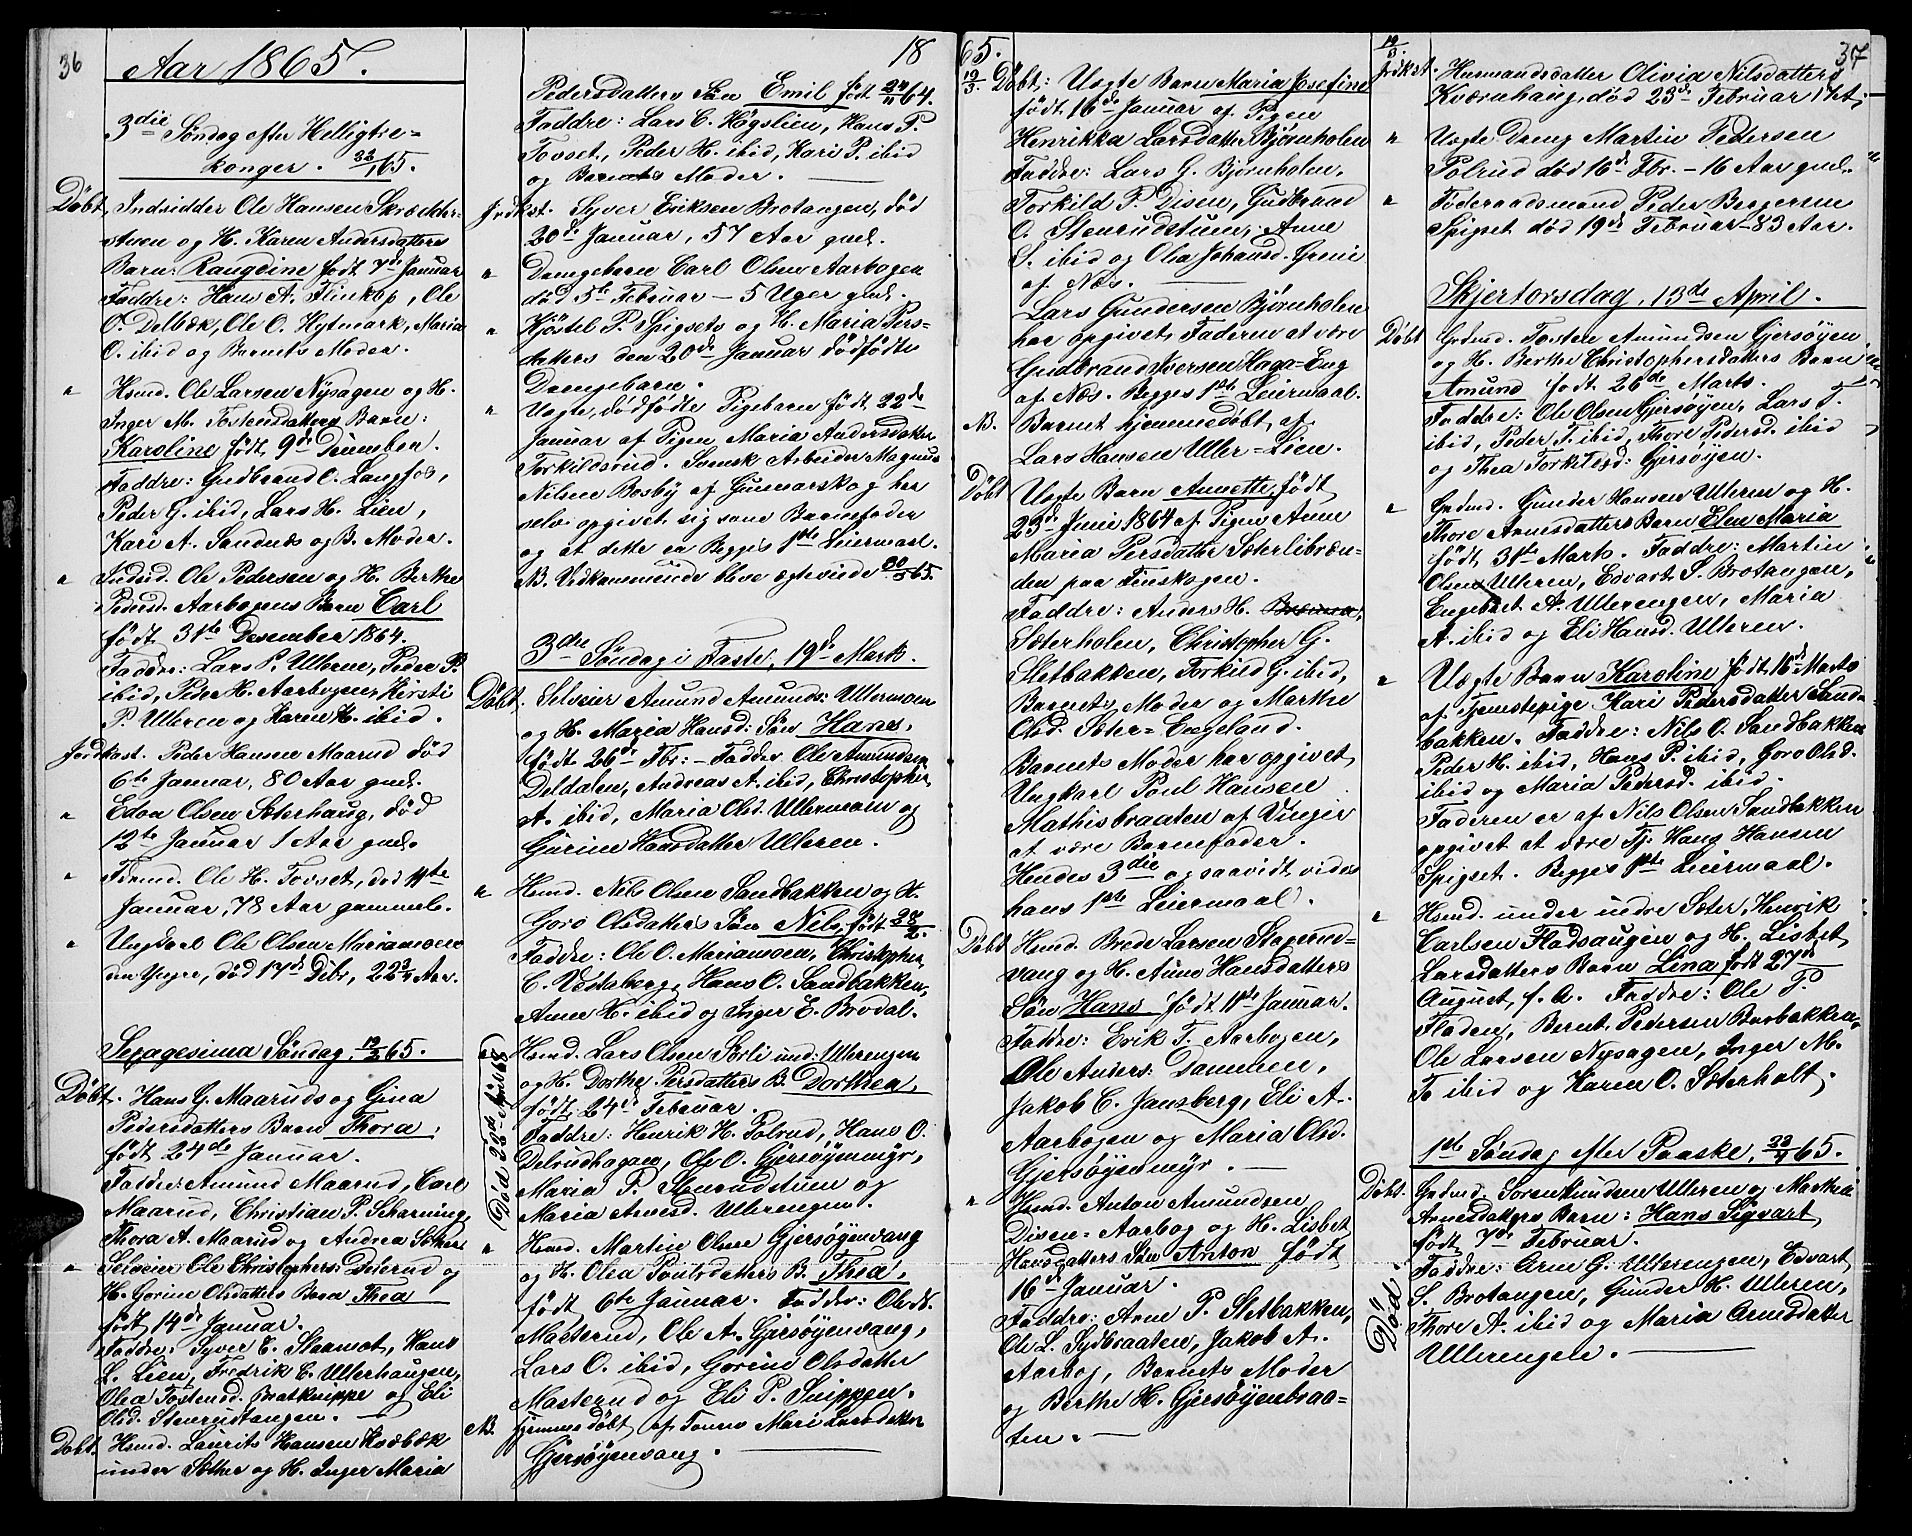 36
Aar 1865.
3die Søndag efter Helligtre=
konger. 22/1 65.
Døbt. Indsidder Ole Hansen Skrædder-
stuen og H. Karen Andersdatters
Barn: Rangdine født 7de Januar
Faddre: Hans A. Flinkop, Ole
O. Delbæk, Ole O. Hytmark, Maria
O. ibid og Barnets Moder.
" Hsmd. Ole Larsen Nysagen og H.
Inger M. Tostensdatters Barn:
Karoline født 9de Desember.
Faddre: Gudbrand O. Langfos,
Peder G. ibid, Lars H. Lien,
Kari A. Sandnæs og B. Moder.
" Indsid. Ole Pedersen og H. Berthe
Pedersd. Aarbogens Barn Carl
født 31te Desember 1864.
Faddre: Lars P. Ulleren, Peder P.
ibid, Peder H. Aarbogen, Kirsti
P. Ulleren og Karen H. ibid.
Jordkast. Peder Hansen Maarud død
6te Januar, 80 Aar gml.
" Edon Olsen Sæterhaug, død
12te Januar 1 Aar gml.
" Ole H. Tovset, død 11te
Januar, 78 Aar gammel.
" Ungkarl Ole Olsen Mariamoen
død 17de Debr, 22 3/4 Aar.
Sexagesima Søndag, 19/2 65.
Døbt. Hans G. Maaruds og Gina
Pedersdatters Barn Thora,
født 24de Januar.
Faddre: Amund Maarud, Carl
Maarud, Christian P. Skarning,
Thora A. Maarud og Andrea Sæther
" Selveier Ole Christophers. Delerud og
H. Gorine Olsdatters Barn Thea
født 14de Januar.
Faddre: Syver E. Staamot, Hans
L. Lien, Fredrik E. Ullerhaugen,
Olea Tostensd. Bratknippe og Eli
Olsd. Stenrudtangen.
Døbt. Hsmd. Laurits Hansen Kvæbæk
under Sæther og H. Inger Maria
18
Pedersdatters Søn Emil født 24/11 64.
Faddre: Lars C. Høgslien, Hans P.
Tovset, Peder H. ibid, Kari P. ibid
og Barnets Moder.
Jordkst. Syver Eriksen Brotangen, død
20de Januar, 57 Aar gml.
" Drengebarn Carl Olsen Aarbogen
død 5te Februar - 5 Uger gml.
" Kjøstel P. Spigsets og H. Maria Pers-
datters den 20de Januar dødfødte
Drengebarn.
" Uegte, dødfødte Pigebarn født 22de
Januar af Pigen Maria Andersdatter
Torkildsrud. Svensk Arbeider Magnus
Nilsen Bosby af Gunnarskog har
selv opgivet sig som Barnefader
og at dette er Begges 1ste Leiermaal.
NB. Vedkommende bleve ægteviede 65.
3die Søndag i Faste, 19de Marts.
Døbt. Selveier Amund Amunds. Ullermoen
og H. Maria Hansd: Søn Hans,
født 26de Fbr: - Faddre Ole Amundsen
Deldalen, Andreas A. ibid, Christopher
A. ibid, Maria Olsd. Ullermoen og
Gurine Hansdatter Ulleren.
" Hsmd. Nils Olsen Sandbakken og H.
Goro Olsdatters Søn Nils, født 22/2.
Faddre: Ole O. Mariamoen, Christopher
C. Vestaberg, Hans O. Sandbakken,
Anne H. ibid og Inger E. Brodal.
(Død 28de April 68) Hsmd. Lars Olsen Sørli und. Ullerengen
og H. Dorthe Persdatters B. Dorthea,
født 24de Februar.
Faddre: Henrik H. Polrud, Hans O.
Delrudhagen, Ole O. Gjersøyenmyr,
Maria P. Stenrudstuen og
Maria Arnesd. Ullerengen.
" Hsmd. Martin Olsen Gjersøyenvang
og H. Olea Poulsdatters B. Thea,
født 6te Januar. Faddre: Ole H.
Masterud, Ole A. Gjersøyenvang,
Lars O. ibid, Gorine Olsdatter
Masterud og Eli P. Snippen.
NB. Hjemmedøbt af Mari Larsdatter
Gjersøyenvang.
65.
19/3 Døbt: Uegte Barn Maria Josefine
født 16de Januar af Pigen
Henrikka Larsdatter Bjørnholen
Faddre: Lars G. Bjørnholen,
Torkild P. Disen, Gudbrand
O. Stenrudstuen, Anne
S. ibid og Olea Johansd. Greni
af Næs.
Lars Gundersen Bjørnholen
har opgivet Faderen at være
Gudbrand Iversen Haga-Eng
af Næs. Begges 1ste Leiermaal.
NB. Barnet hjemmedøbt af
Lars Hansen Uller=Lien.
Døbt Uegte Barn Annette, født
23de Juni 1864 af Pigen Anne
Maria Persdatter Sæterlibræn-
den paa Finskogen.
Faddre: Anders H.
Sæterholen, Christopher G.
Sletbakken, Torkild G. ibid,
Barnets Moder og Marthe
Olsd. Sæter=Engeland.
Barnets Moder har opgivet
Ungkarl Poul Hansen
Mathisbraaten af Vinger
at være Barnefader.
Hendes 3die og saavidt vides
hans 1ste Leiermaal.
Døbt Hsmd. Brede Larsen Stagrund=
vang og H. Anne Hansdatters
Søn Hans født 11te Januar.
Faddre: Erik T. Aarbogen,
Ole Anders: Dammen,
Jakob C. Jansberg, Eli A.
Aarbogen og Maria Olsd.
Gjersøyenmyr.
" Hsmd. Anton Amundsen
Disen=Aarbog og H. Lisbet
Hansdatters Søn Anton født
16de Januar.
Faddre: Arne P. Sletbakken,
Ole L. Sydbraaten, Jakob A.
Aarbog, Barnets Moder
og Berthe H. Gjersøyenbraa=
ten.
37
19/3
Jrdkst. Husmandsdatter Olivia Nilsdatter
Kværnhaug, død 23de Februar
" Uegte Dreng Martin Pedersen
Polrud død 16de Fbr. - 16 Aar gml.
" Føderaadsmand Peder Bergersen
Spigset død 19de Februar - 83 Aar.
Skjertorsdag, 13de April.
Døbt Grdmd. Tosten Amundsen Gjersøyen
og H. Berthe Christophersdatters Barn
Amund født 26de Marts.
Faddre: Ole Olsen Gjersøyen, Lars T.
ibid, Peder T. ibid, Thore Pedersd. ibid
og Thea Torkildsd: Gjersøyen.
" Grdmd. Gunder Hansen Ulleren og H.
Thore Arnesdatters Barn Elen Maria
født 31te Marts. Faddre: Martin
Olsen Ulleren, Edvart S. Brotangen,
Engebret A. Ullerengen, Maria
A. ibid og Eli Hansd. Ulleren.
" Uægte Barn Karoline født 16de Marts
af Tjenestepige Kari Pedersdatter Sand-
bakken. Faddre: Nils O. Sandbakken
Peder H. ibid, Hans P. ibid, Goro Olsd.
ibid og Maria Pedersd. ibid.
Faderen er af Nils Olsen Sandbakken
opgivet at være Tj. Hans Hansen
Spigset. Begges 1ste Leiermaal.
" Hsmd. under indre Sæter, Henrik
Carlsen Fladhaugen og H. Lisbet
Larsdatters Barn Lina født 27de
August, f. A. Faddre: Ole P
Fladen, Bernt Pedersen Borbakken
Ole Larsen Nysagen, Inger M.
T. ibid og Karen O. Sæterholt.
1ste Søndag efter Paaske, 23/4 65.
Døbt. Grdmd. Soren Knudsen Ulleren og Marthea
Arnesdatters Barn: Hans Sigvart
født 7de Februar.
Død. Faddre: Arne G. Ullerengen, Edvart
S. Brotangen, Gunder H. Ulleren,
Thore A. ibid og Maria Arnesdatter
Ullerengen.